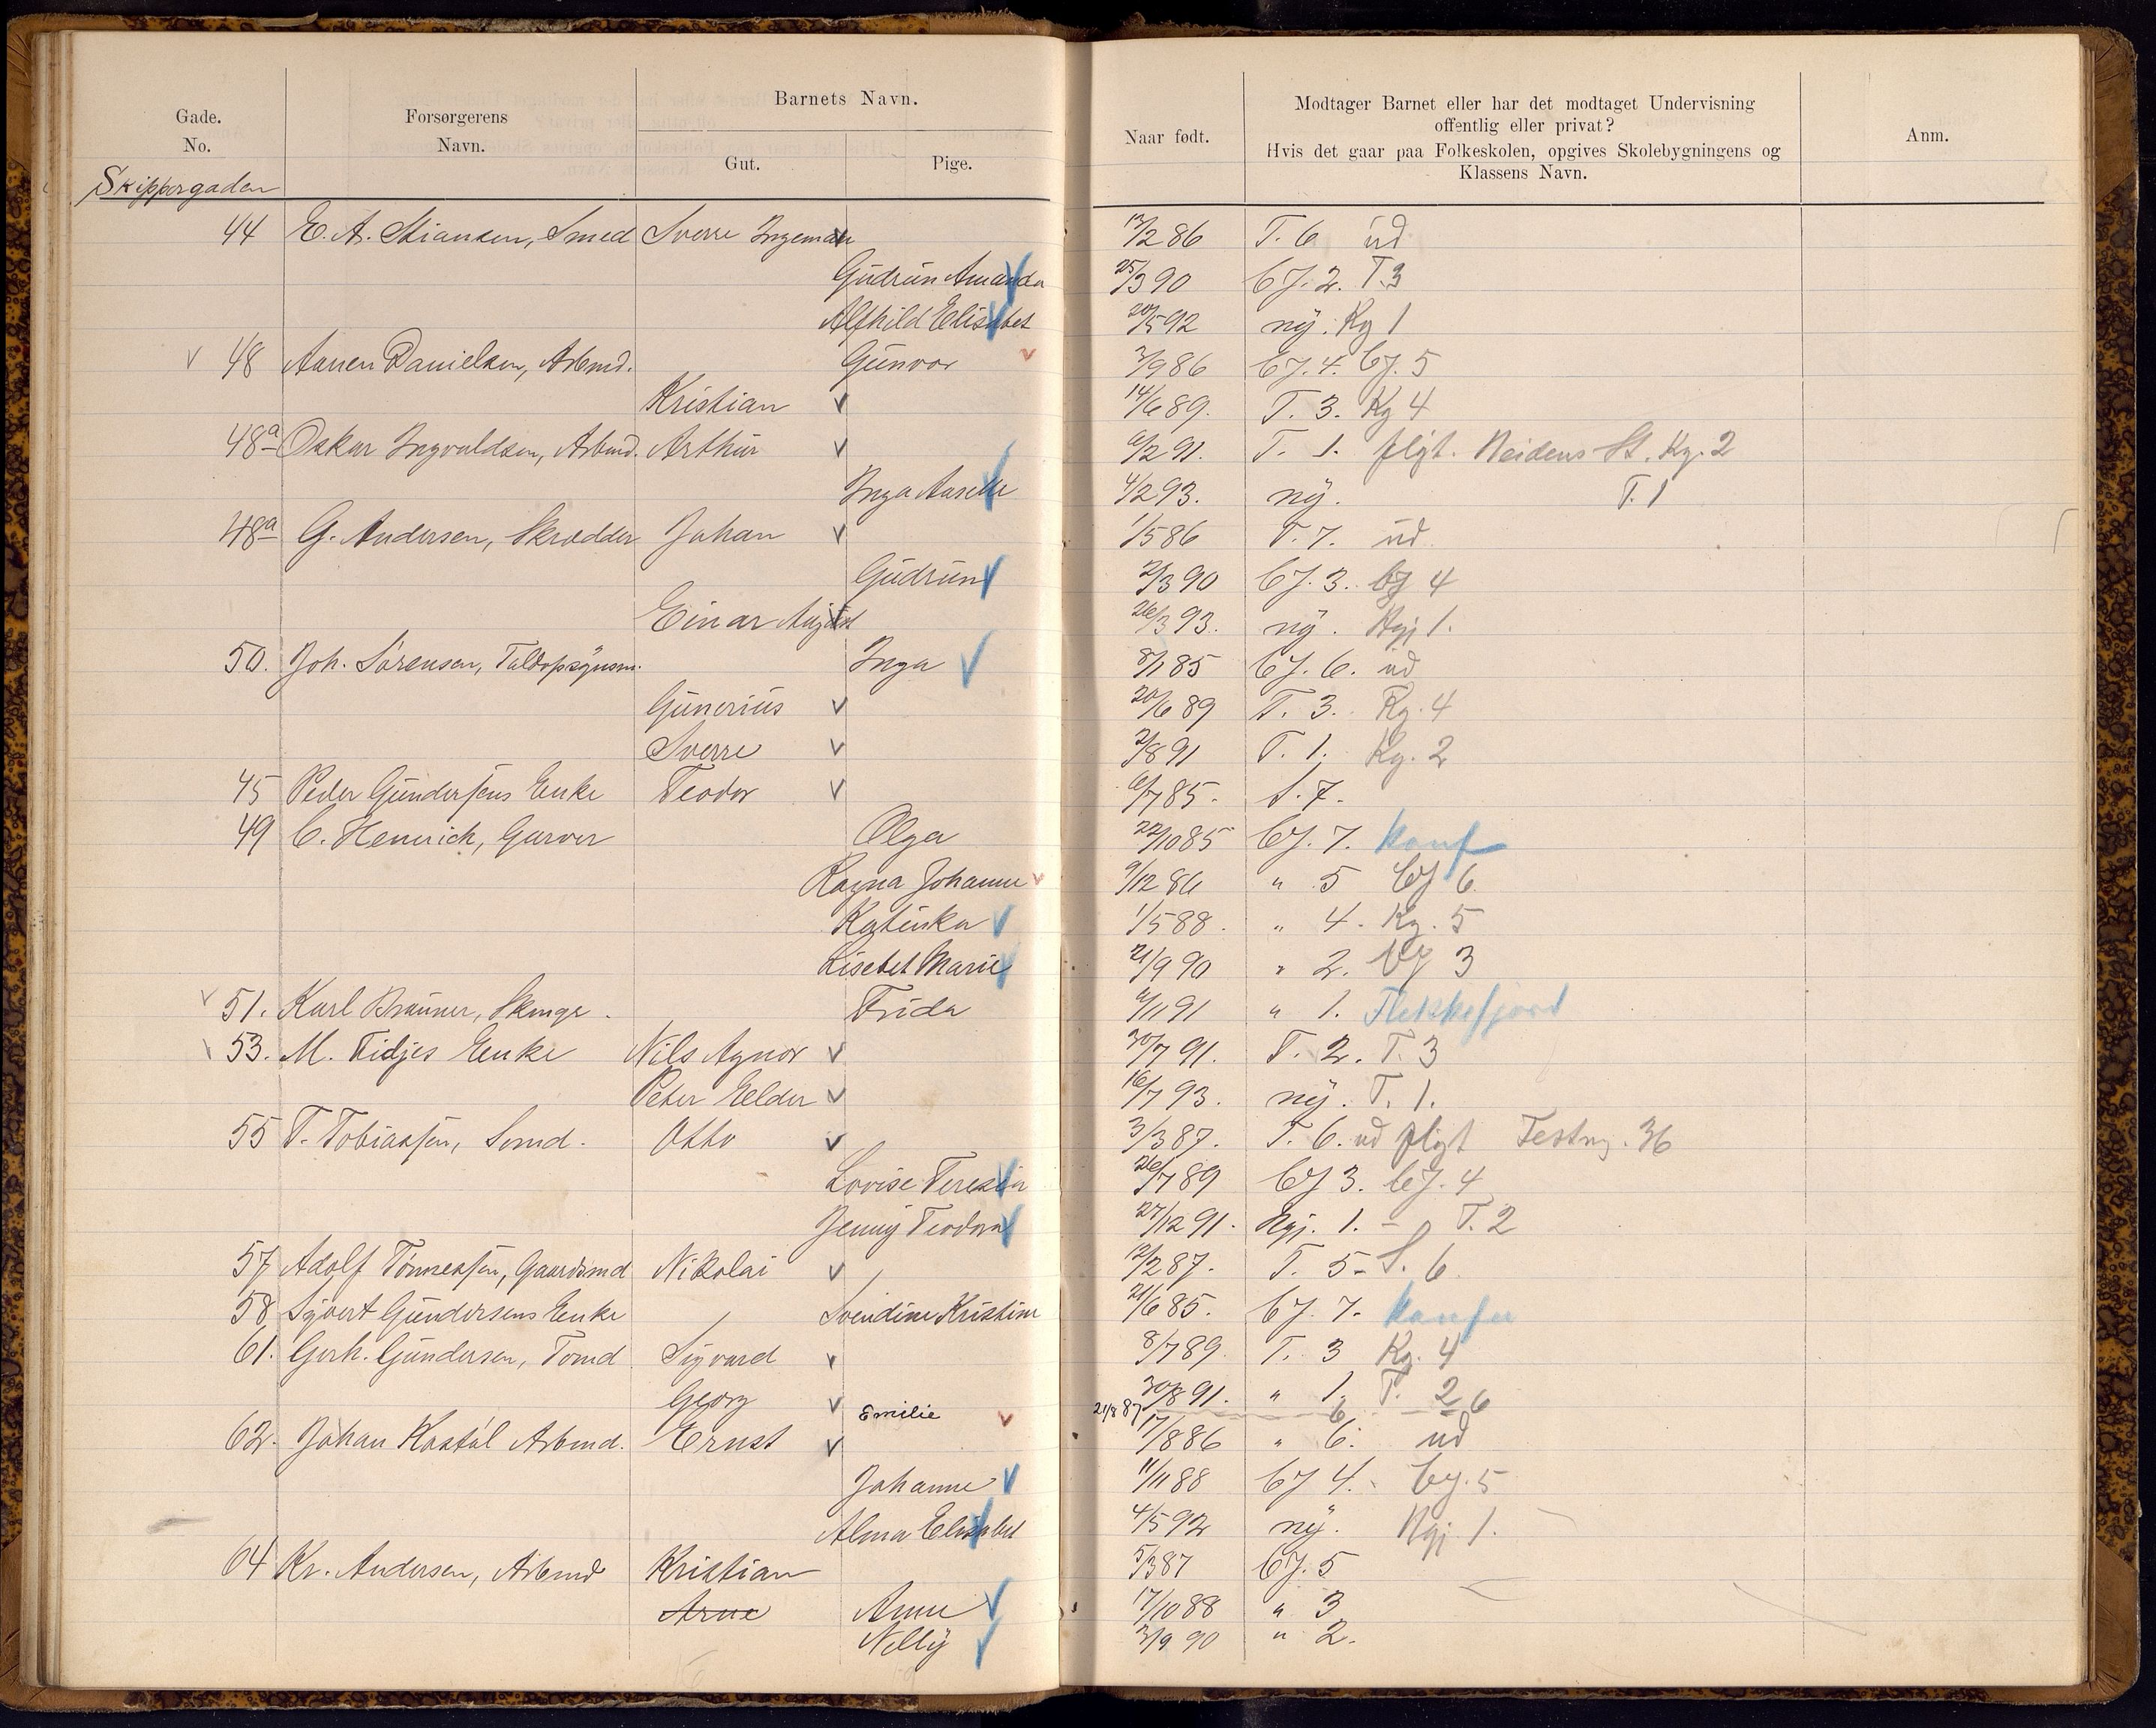 Gade. No. Forsørgerens Navn. Barnets Navn. Gut. Pige. Naar født. Modtager Barnet eller har det modtaget Undervisning offentlig eller privat? Hvis det gaar paa Folkeskolen, opgives Skolebygningens og Klassens Navn. Anm.
Skippergaden
44 E. A. Stiansen, Smed Sverre Ingeman 86 T. 6 ud
Gudrun Amanda 25/3 90 bJ. 2. T. 3
Alfhild Elisabet 92 ny. Kg 1
48 Aanen Danielsen, Arbmd. Gunvor 3/9 86 bJ. 4. bJ. 5
Kristian 14/6 89. T. 3. Kg 4
48a Oskar Ingvaldsen, Arbmd. Arthur 6/2 91. T. 1. flyt. St. Kg. 2
Inga 4/2 93. ny. T. 1
48a G. Andersen, Skrædder Johan 1/5 86 T. 7. ud
Gudrun 2/3 90 bJ. 3. bJ 4
Einar August 26/3 93. ny. Ngj 1.
50. Joh. Sørensen, Inga 8/1 85 bJ. 6. ud
Gunerius 20/6 89 T. 3. Kg. 4
Sverre 2/8 91 T. 1. Kg. 2
45 Peder Gundersens Enke Teodor 6/7 85. S. 7.
49 C. Henrich, Garver Olga 22/10 85 bJ. 7. konf
Ragna Johanne 9/12 86 " 5 bJ 6
Katinka 1/5 88. " 4. Kg. 5
Lisebet Marie 21/9 90 " 2. bJ 3
51. Karl Brunner, Frida 6/11 91 " 1. Flekkefjord
53. M. Tidjes Enke Nils Agnor 30/7 91. T. 2. T. 3
Peter Elder 16/7 93. ny. T. 1.
55 T. Tobiassen, Sømd. Otto 3/3 87. T. 6. ud flyt Festng. 36
Lovise Teresia 26/7 89 bJ 3. bJ. 4
Jenny Teodora 27/12 91. Ngj. 1. - T. 2
57 Adolf Tønnessen, Gaardsmd Nikolai 12/2 87. T. 5 - S. 6
58 Syvert Gundersens Enke Svendine Kristine 21/6 85. bJ. 7. konf
61. Gerh. Gundersen, Tømd Sigvard 8/7 89. T. 3 Kg. 4
Georg 30/8 91. " 1. T. 2
Emilie 21/8 87 6 6
62. Johan Kastøl Arbmd. Ernst 17/8 86 " 6. ud
Johanne 11/11 88 bJ 4. bJ. 5
Alma Elisabet 4/5 92 ny. Ngj. 1.
64 Kr. Andersen, Arbmd Kristian 5/3 87 bJ. 5
Arne Anne 17/10 88 " 3
Nelly 3/9 90 " 2.